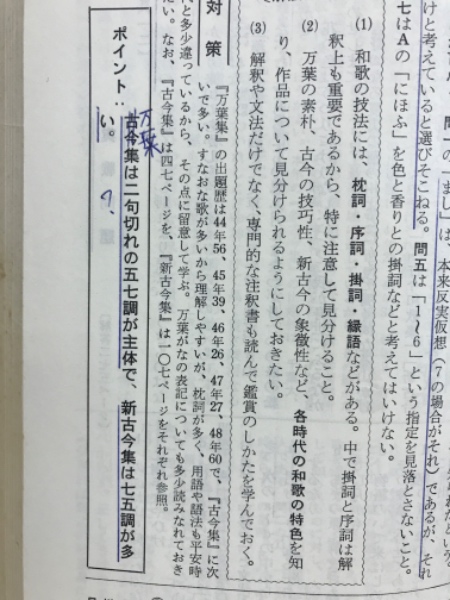 問一の「まし」は、本来反実仮想(7の場合がそれ)であるが、それ
けと考えていると選びそこねる。問五は「1~6」という指定を見落とさないこと。
七はAの「にほふ」を色と香りとの掛詞などと考えてはいけない。
(1) 和歌の技法には、枕詞・序詞・掛詞・縁語などがある。中で掛詞と序詞は解
釈上も重要であるから、特に注意して見分けること。
(2) 万葉の素朴、古今の技巧性、新古今の象徴性など、各時代の和歌の特色を知
り、作品について見分けられるようにしておきたい。
(3) 解釈や文法だけでなく、専門的な注釈書も読んで鑑賞のしかたを学んでおく。
対策
『万葉集』の出題歴は44年56、45年39、46年26、47年27、48年60で、『古今集』に次
いで多い。すなおな歌が多いから理解しやすいが、枕詞が多く、用語や語法も平安時
代と多少違っているから、その点に留意して学ぶ。万葉がなの表記についても多少読みなれておき
たい。なお、『古今集』は四七ページを、『新古今集』は一〇七ページをそれぞれ参照。
万葉
ポイント:古今集は二句切れの五七調が主体で、新古今集は七五調が多
い。
?